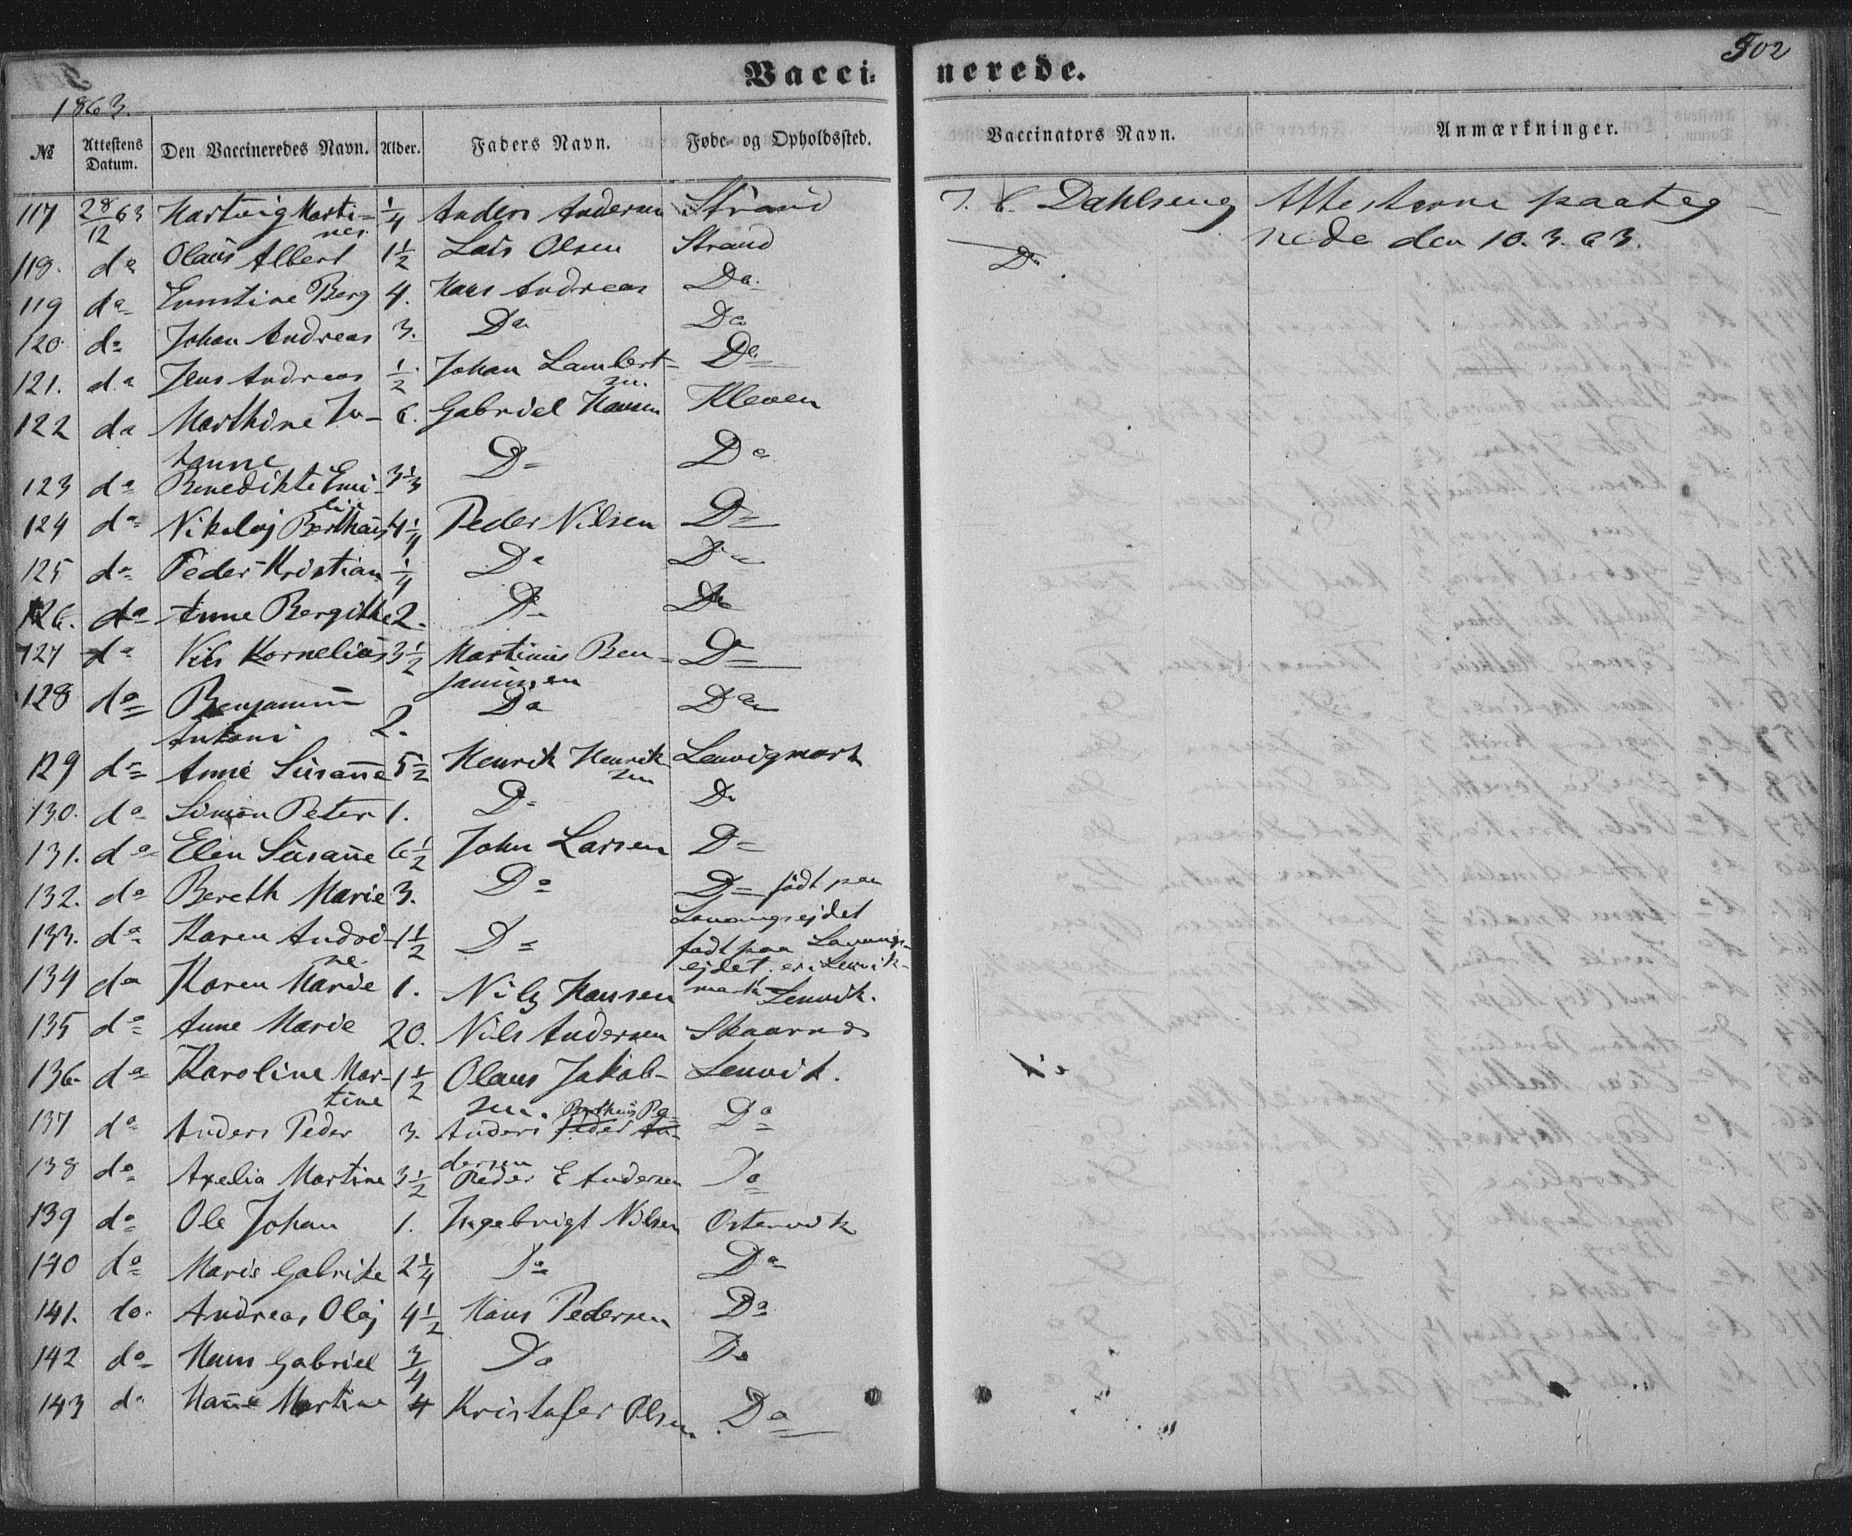 Vacci= nerede.
502
1863.
№ Attestens Datum. Den Vaccineredes Navn. Alder. Faders Navn. Føde- og Opholdssted. Vaccinators Navn. Anmærkninger.
117 28/12 63 Hartvig Marti- 1/4 Anders Andersen Strand Dahlseng Attesterne paateg-
nus
118. do Olaus Albert 1 1/2 Lars Olsen Strand Do nede den 10.3.63.
119 do Ernstine Berg 4. Hans Andreas Do.
120. do Johan Andreas 3. Do Do
121. do Jens Andreas 1/2 Johan Lambert- Do
sen
122 do Marthine Jo- 6. Gabriel Hansen Kleven
hanne
123 do Benedikte Emi- 3 1/3 Do Do
lie
124 do Nikolaj Berthæus 4 1/4 Peder Nilsen Do
125 do Peder Kristian 1/4 Do Do
126. do Anne Bergitthe 2. Do Do
127 do Nils Kornelius 3 1/2 Martinus Ben- Do
jaminsen
128 do Benjamin 2. Do Do
Antoni
129 do Anne Susanne 5 1/2 Henrik Henrik- Lenvigmark
sen
130. do Simon Peter 1. Do Do
131. do Elen Susanne 6 1/2 John Larsen Do
132. do Bereth Marie 3. Do Do født paa
ejdet
133. do Karen Andri- 1 1/2 Do født paa
ne ejdet er i Lenvik-
mark
134 do Karen Marie 1. Nils Hansen Lenvik.
135 do Anne Marie 20. Nils Andersen Skaarnes
136. do Karoline Mar- 1 1/2 Olaus Jakob- Lenvik.
tine sen.
137 do Anders Peder 3. Anders Peder An- Do
dersen
138 do Axelia Martine 3 1/2 Peder E Andersen Do
139 do Ole Johan 1. Ingebrigt Nilsen Ostervik
140 do Maris Gabrike 2 1/4 Do Do
141. do. Andreas Olaj 4 1/2 Hans Pedersen Do
142 do Hans Gabriel 3/4 Do Do
143 do Hanne Martine 4 Kristofer Olsen. Do